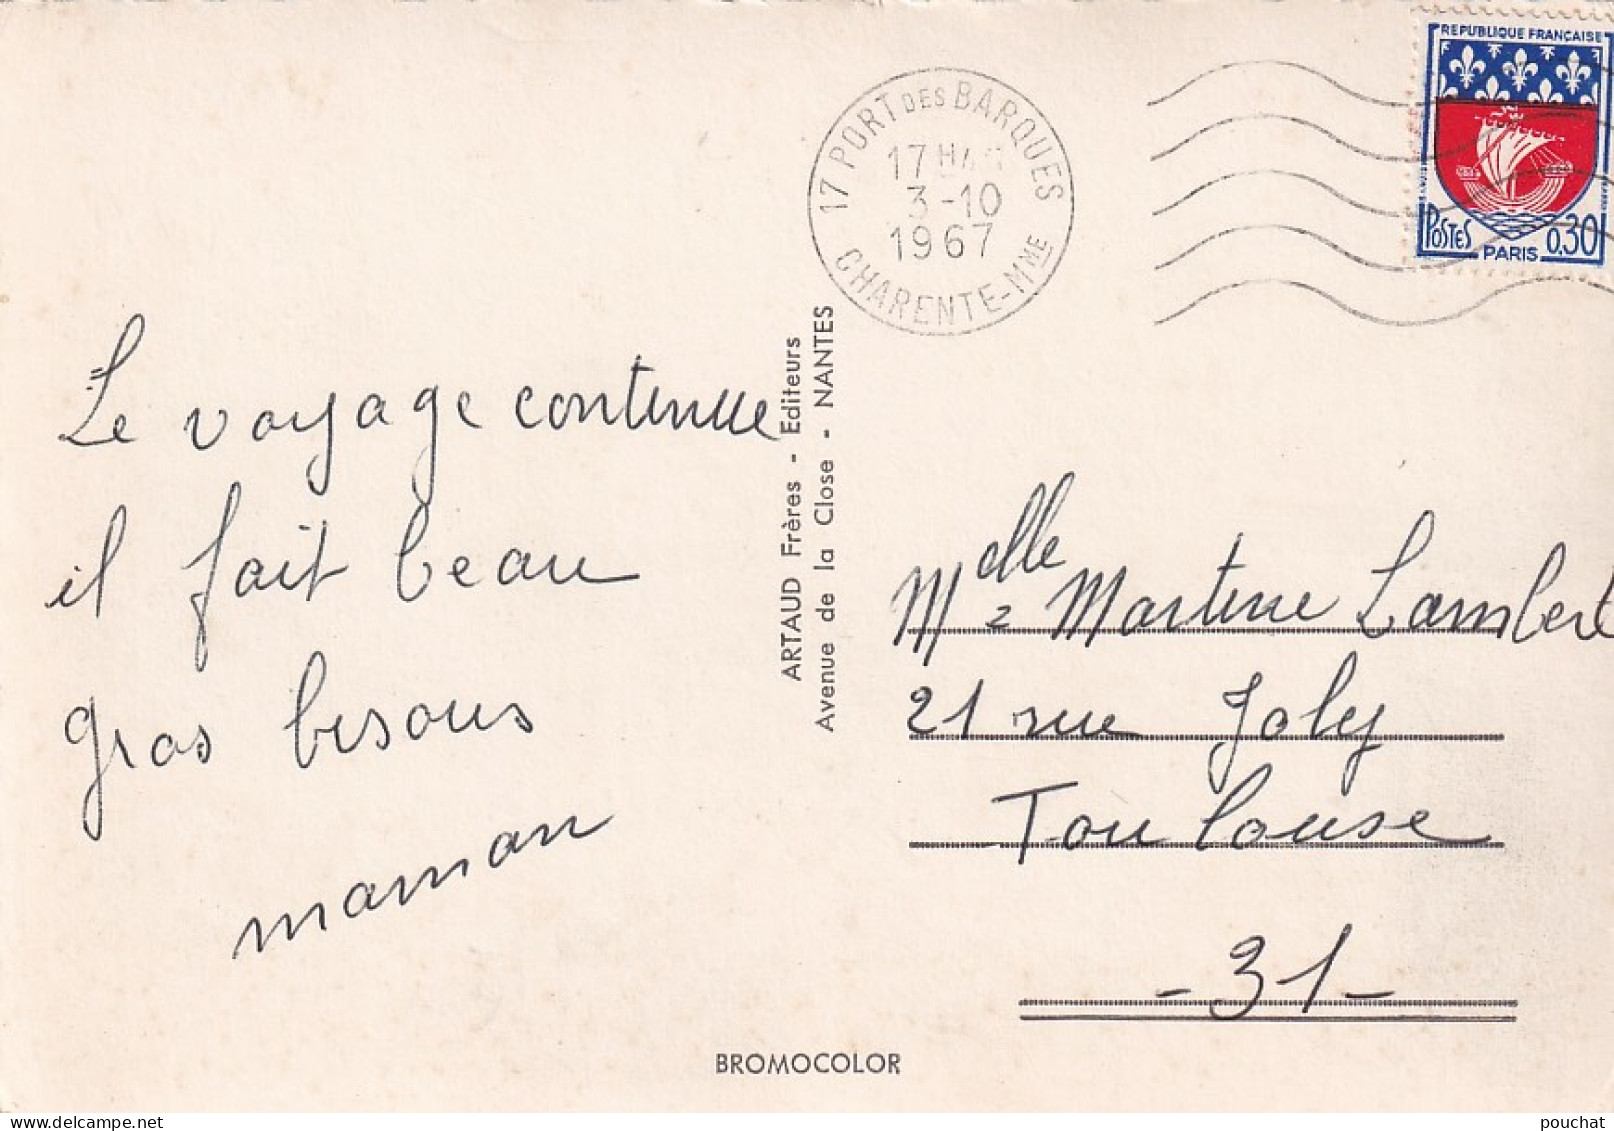 REPUBLIQUE FRANÇAISE
POSTES PARIS 0,30
17 PORT DES BARQUES
17H
3-10
1967
CHARENTE-MME
Le voyage continue
il fait beau
gros bisous
maman
ARTAUD Frères - Editeurs
Avenue de la Close - NANTES
Melle Martine Lambert
21 rue Joly
Toulouse
-31-
BROMOCOLOR
pouchat